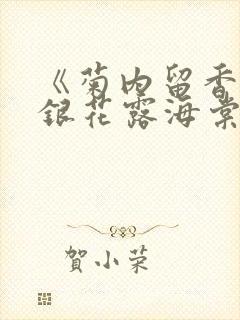 《菊内留香
銀花露海棠
賀小荣